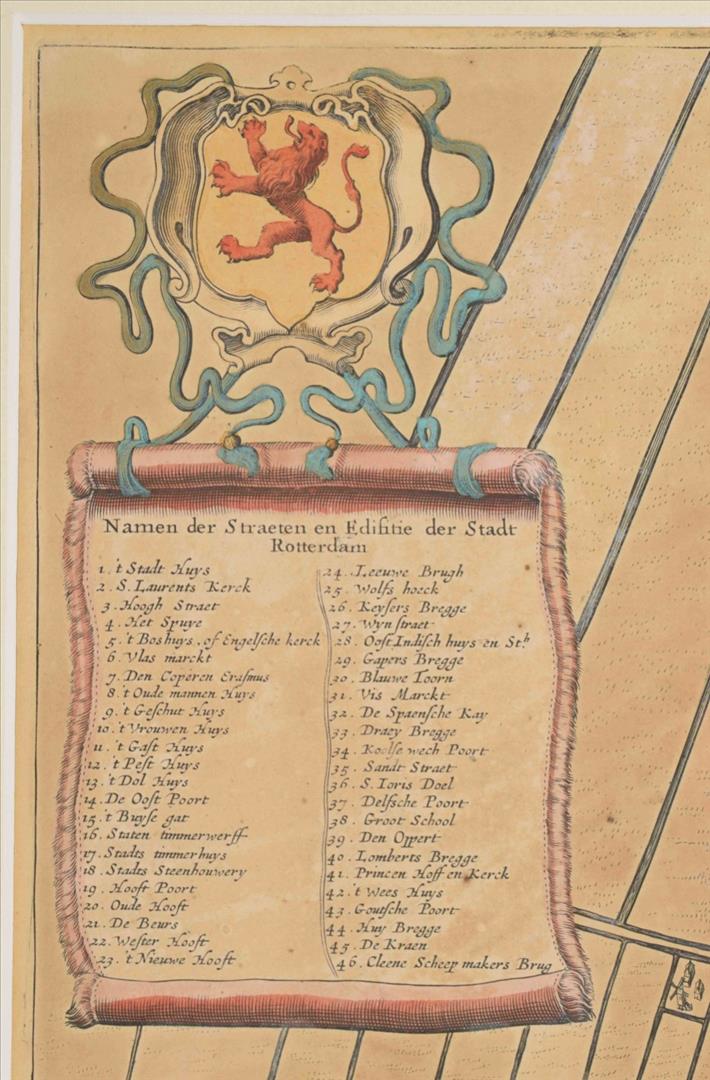 Namen der Straeten en Edifitie der Stadt
Rotterdam
1. 't Stadt Huys
2. S. Laurents Kerck
3. Hoogh Straet
4. Het Spuye
5. 't Boshuys, of Engelsche kerck
6. Vlas marckt
7. Den Coperen Erasmus
8. 't Oude mannen Huys
9. 't Geschut Huys
10. 't Vrouwen Huys
11. 't Gast Huys
12. 't Pest Huys
13. 't Dol Huys
14. De Oost Poort
15. 't Buyse gat
16. Staten timmerwerff
17. Stadts timmerhuys
18. Stadts Steenhouwery
19. Hooft Poort
20. Oude Hooft
21. De Beurs
22. Wester Hooft
23. 't Nieuwe Hooft
24. Leeuwe Brugh
25. Wolfs hoeck
26. Keysers Bregge
27. Wyn straet
28. Oost Indisch huys en St.h
29. Gapers Bregge
30. Blauwe Toorn
31. Vis Marckt
32. De Spaensche Kay
33. Draey Bregge
34. Koolse wech Poort
35. Sandt Straet
36. S. Ioris Doel
37. Delfsche Poort
38. Groot School
39. Den Oppert
40. Lomberts Bregge
41. Princen Hoff en Kerck
42. 't Wees Huys
43. Goutsche Poort
44. Huy Bregge
45. De Kraen
46. Cleene Scheep makers Brug